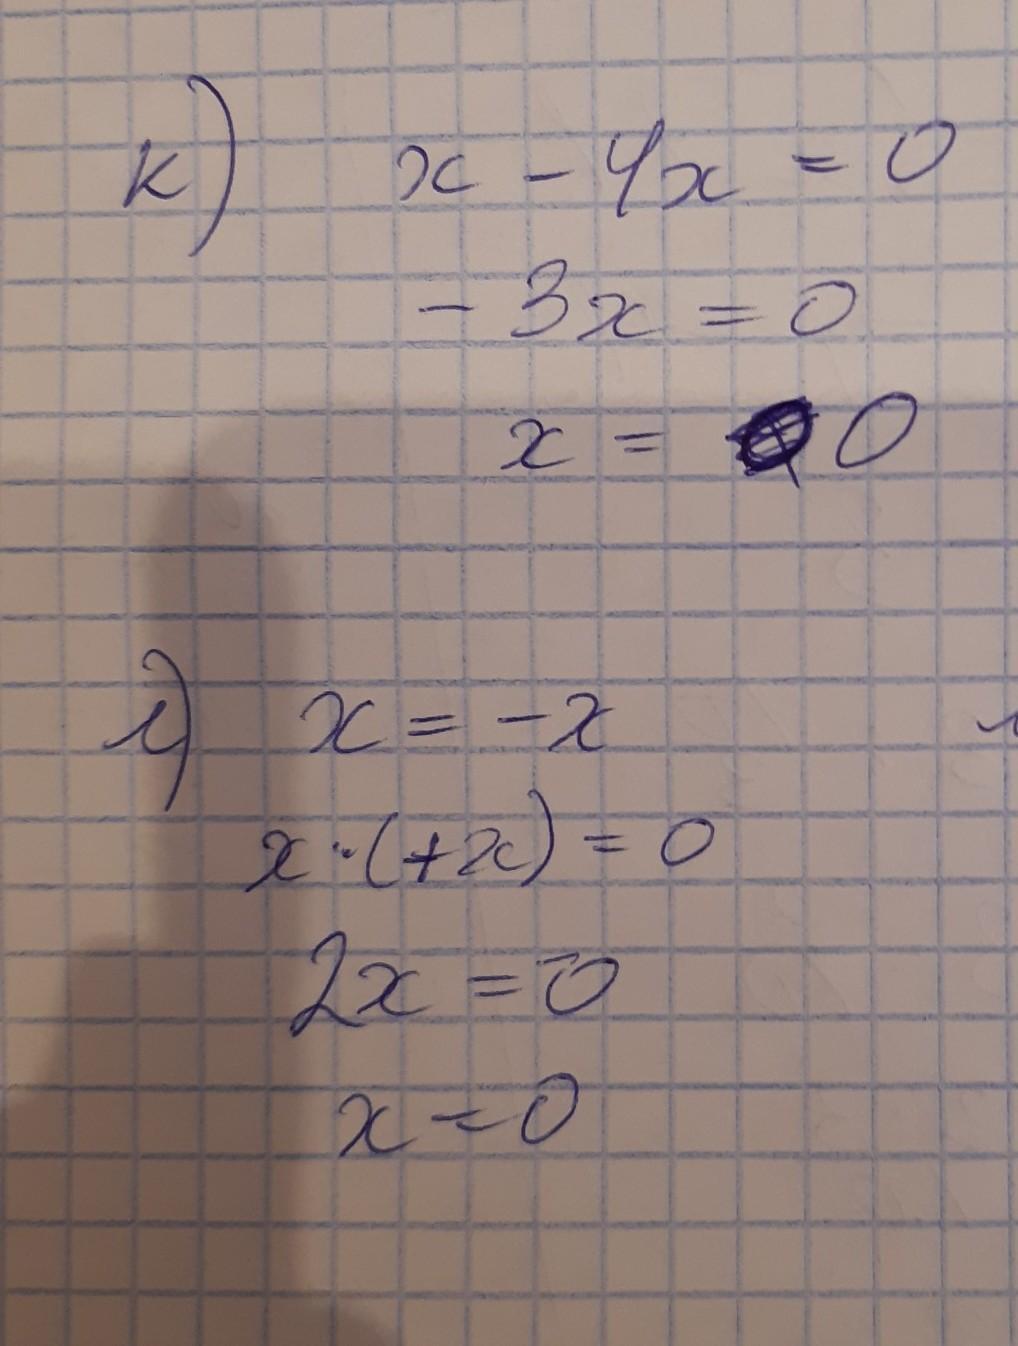 к) x - 4x = 0
- 3x = 0
x = 0
л) x = -x
x·(+x) = 0
2x = 0
x = 0